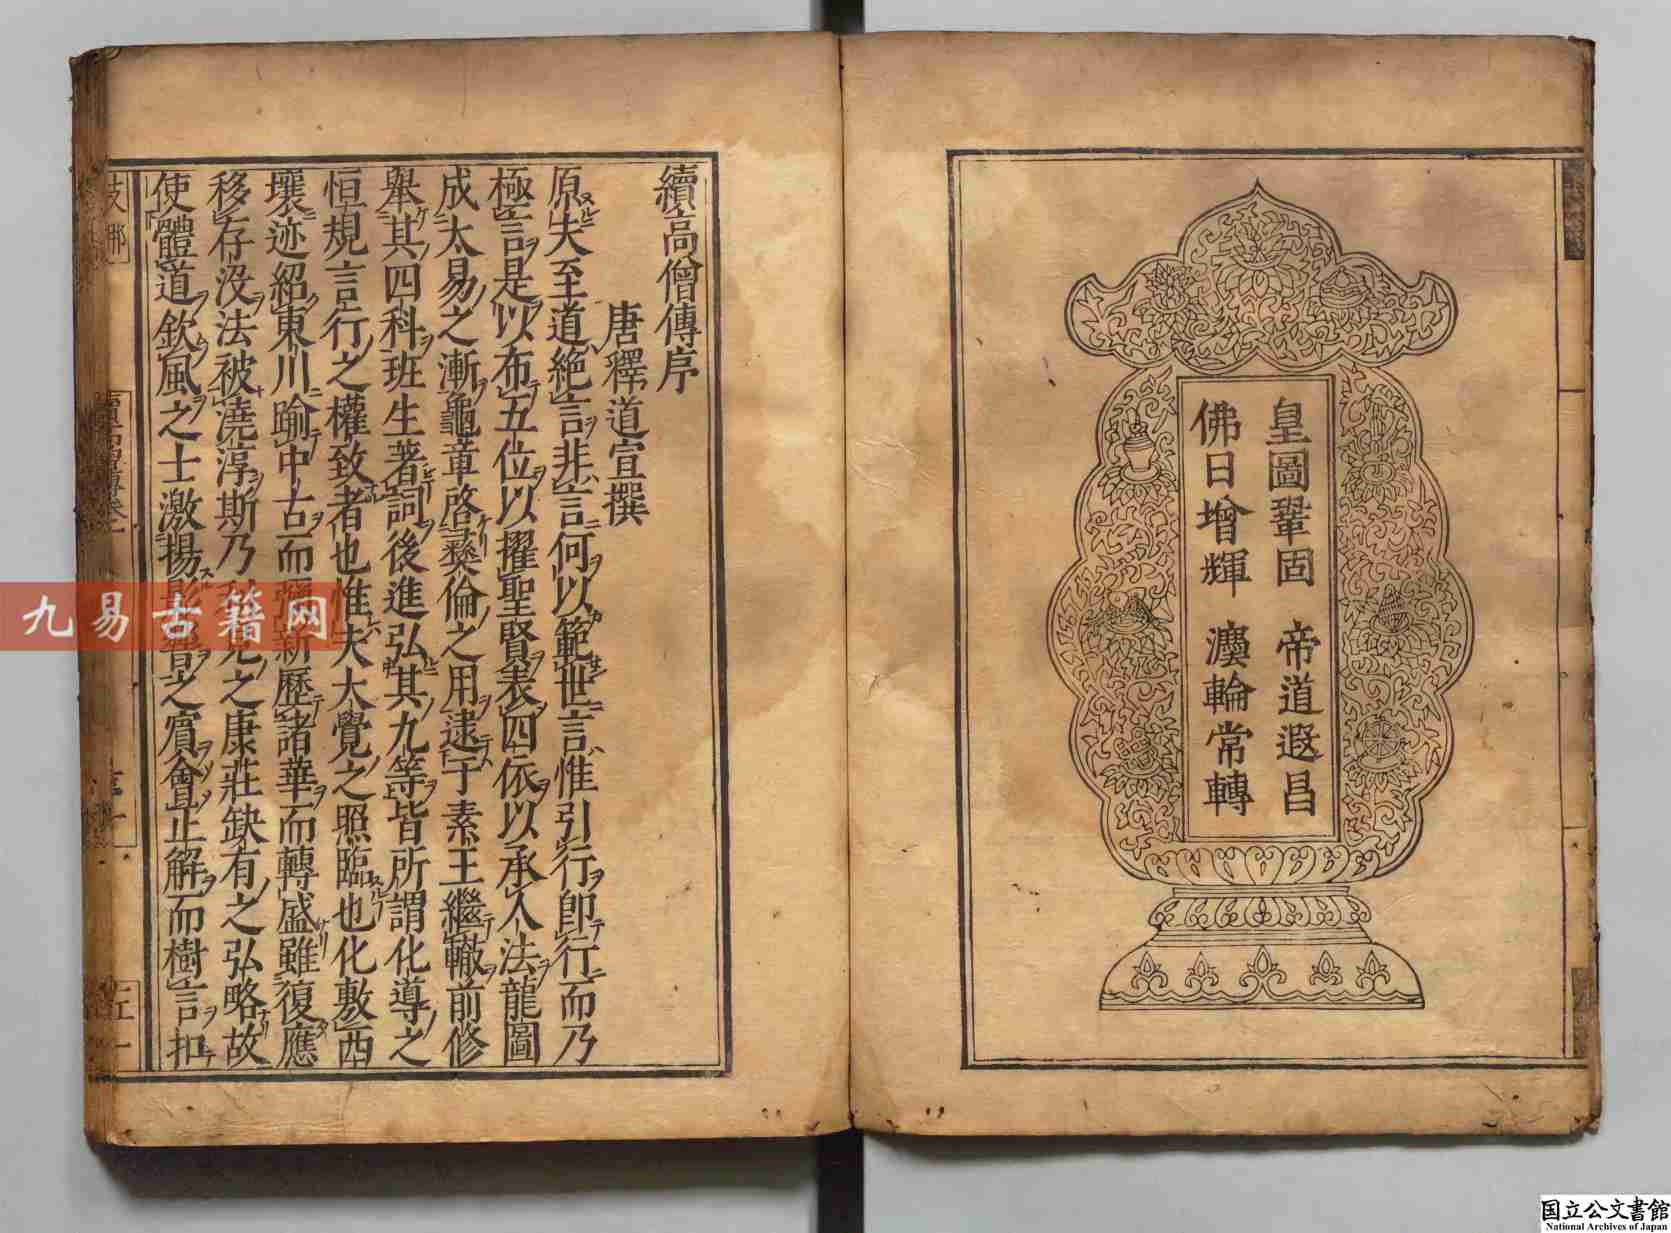 皇圖鞏固 帝道遐昌
佛日增輝 灋輪常轉
續高僧傳序
唐釋道宣撰
原夫至道絶言非言何以範世言惟引行即行而乃
極言是以布五位以擢聖賢表四依以承人法龍圖
成太易之漸龜章啓彝倫之用逮于素王繼轍前修
舉其四科班生著詞後進弘其九等皆所謂化導之
恒規言行之權致者也惟夫大覺之照臨也化敷西
壤迹紹東川踰中古而彌新歷諸華而轉盛雖復應
移存没法被澆淳斯乃利見之康莊缺有之弘略故
使體道欽風之士激揚影響之賓會正解而樹言扣
九易古籍网
国立公文書館
National Archives of Japan